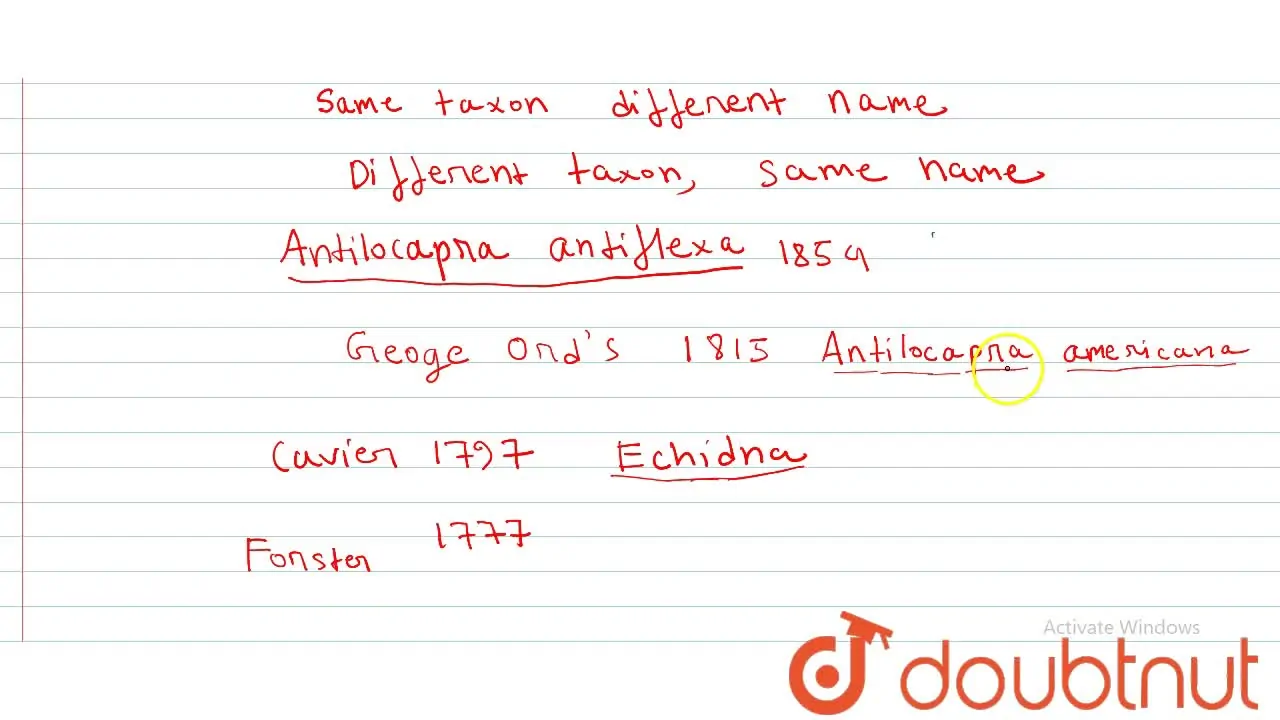 Same taxon different name
Different taxon, same name
Antilocapra antiflexa 1859
Geoge Ord's 1815 Antilocapra americana
Cavier 1797 Echidna
Forster 1777
Activate Windows
doubtnut